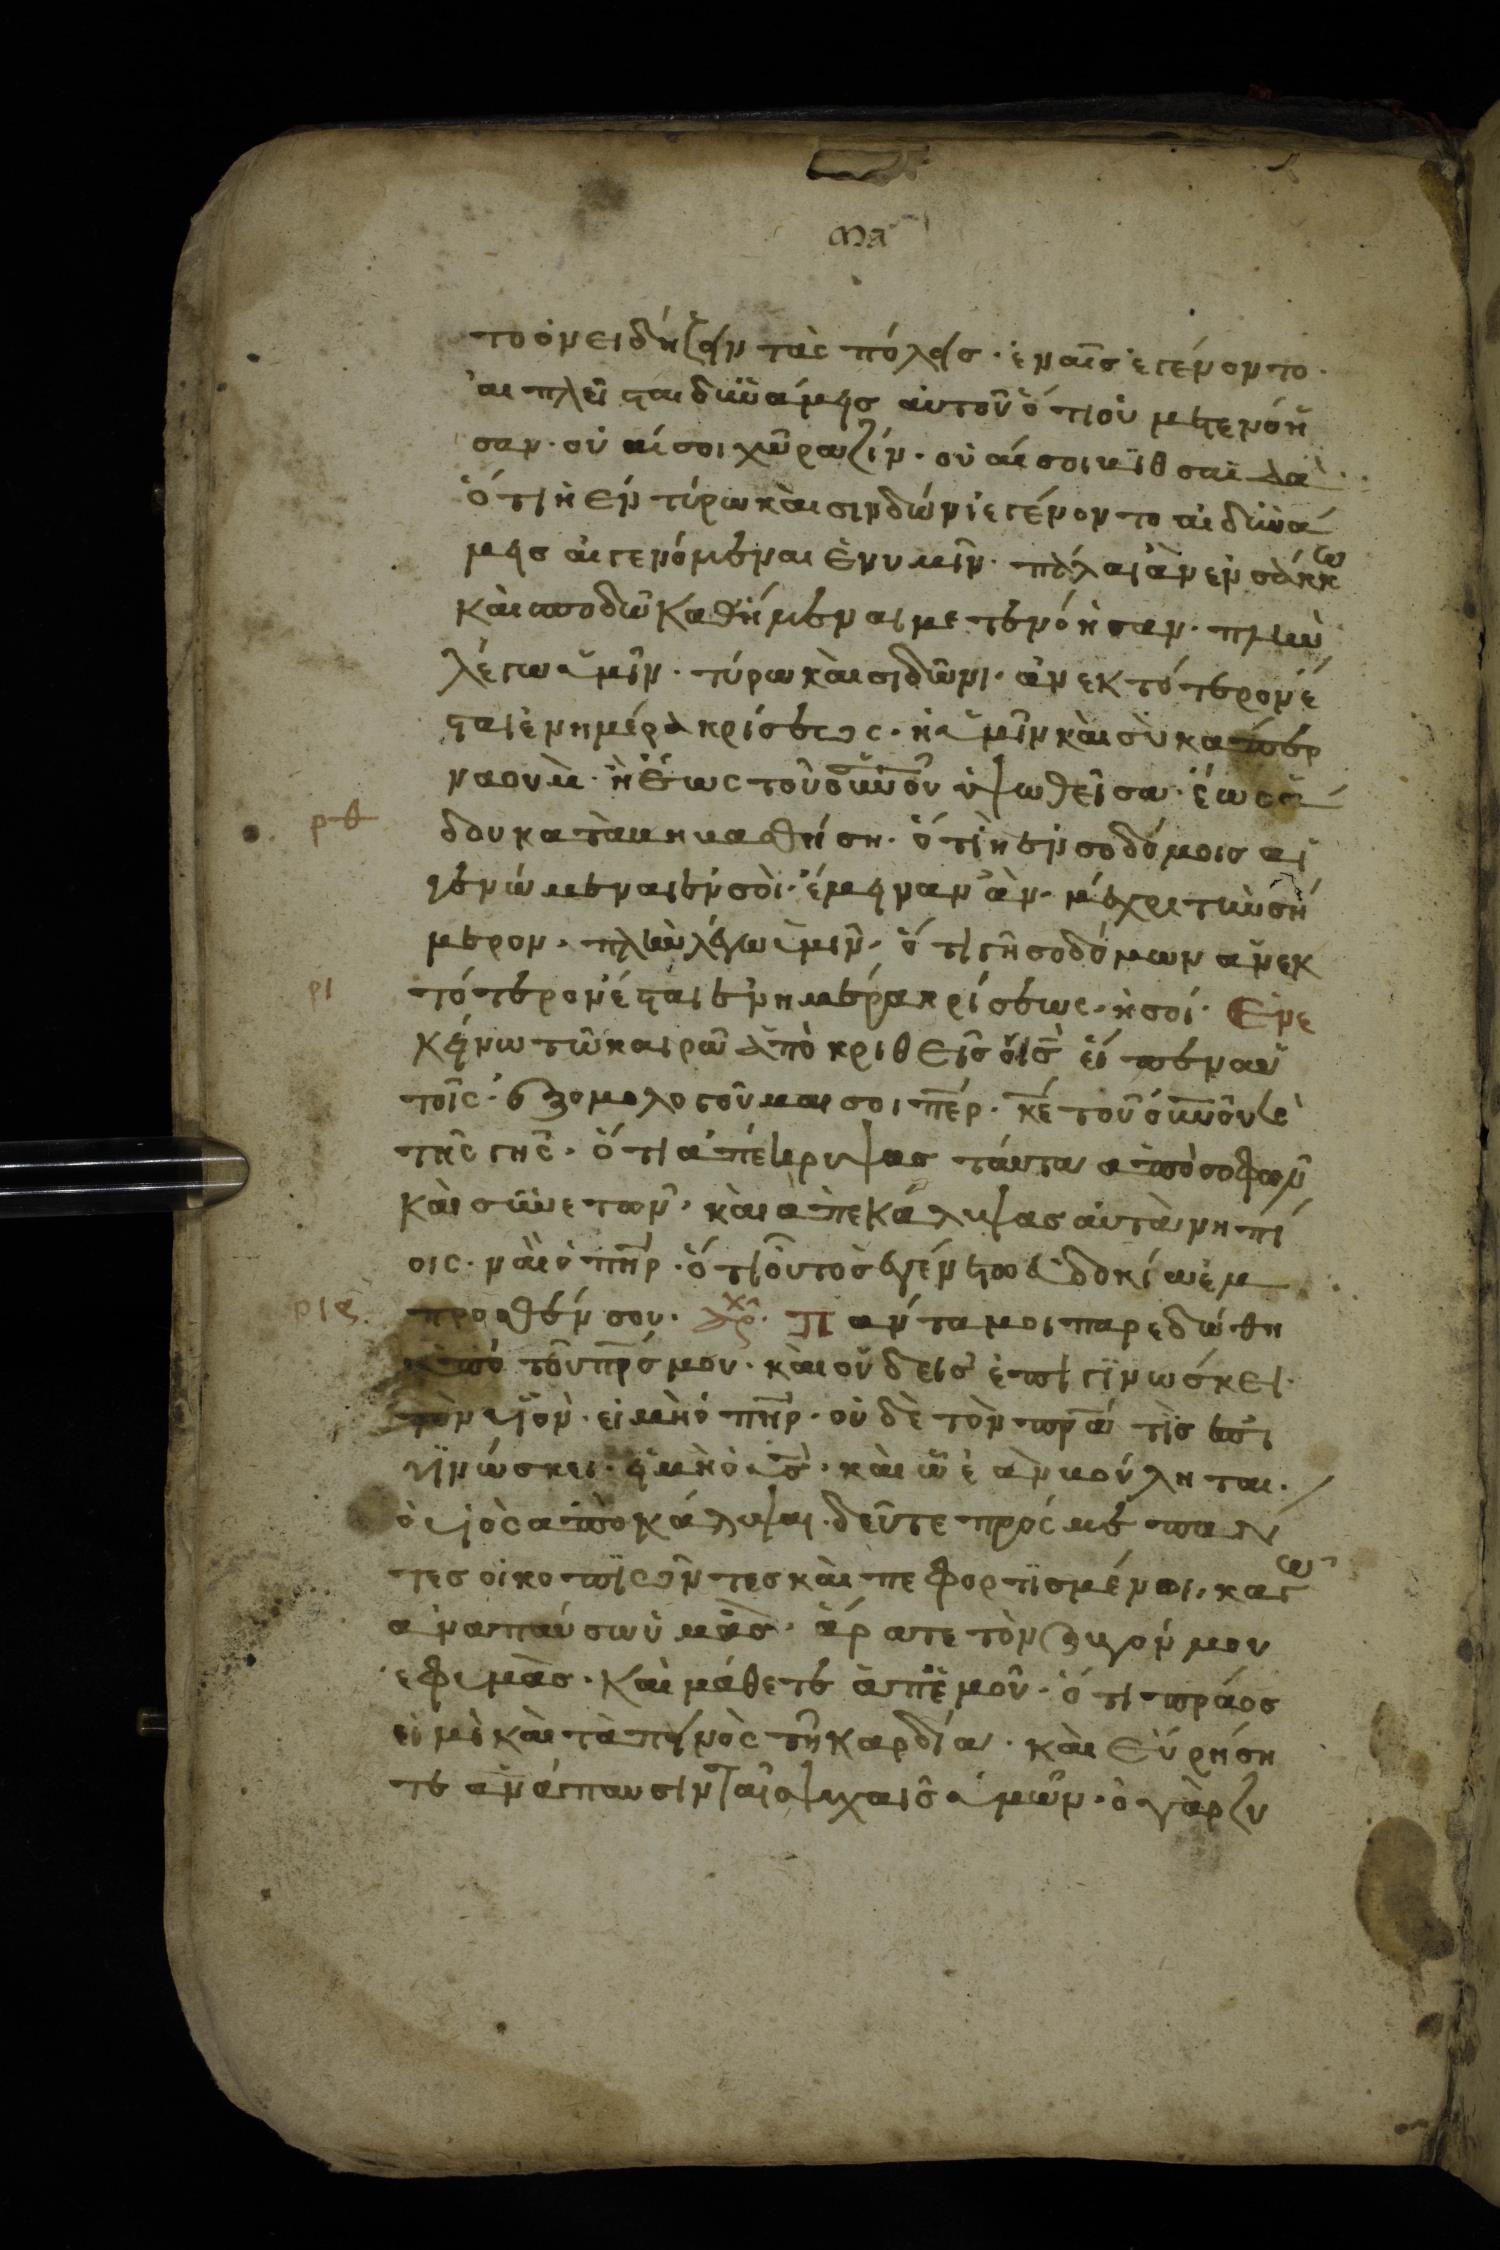 μα
το ὀνειδήζειν τὰς πόλεις · ἐν αἷς ἐγένοντο ·
αἱ πλεῖσται δυνάμεις αὐτοῦ ὅτι οὐ μετενόη
σαν · οὐαί σοι χωραζίν · οὐαί σοι βιθσαϊδὰ ·
ὅτι ἡ ἐν τύρω καὶ σινδώνι ἐγένοντο αἱ δυνά
μεις αἱ γενόμεναι ἐν υμῖν · πάλαι ἂν ἐν σάκκω
καὶ σποδῶ καθήμεναι μετενόησαν · πλὴν
λέγω ὑμῖν · τύρω καὶ σιδῶνι · ἀνεκτότερον ἔ
σται ἐν ημέρα κρίσεως · ἢ ὑμῖν καὶ σὺ καπερ
ναουμ · ἡ ἕως τοῦ οὐνοῦ ὑψωθεῖσα · ἕως ἅ
ρθ δου καταβηβασθήση · ὅτι ἡ ἐν σοδόμοις αἱ
γενώμεναι ἐν σοὶ · ἔμειναν ἂν · μέχρι τὴν σή
μερον · πλὴν λέγω ὑμῖν · ὅτι γῆ σοδόμων ἀνεκ
ρι τότερον ἔσται ἐν ημέρα κρίσεως · ἢ σοί · Ἐν ε
κείνω τῶ καιρῶ ἀποκριθεὶς ὁ ις εἶπεν αὐ
τοῖς · ἐξομολογοῦμαι σοι περ · κε τοῦ οὐνοῦ καὶ
τῆς γῆς · ὅτι ἀπέκρυψας ταῦτα απὸ σοφῶν
καὶ συνετῶν · καὶ ἀπεκάλυψας αὐτὰ νηπί
οις · ναὶ ὁ πηρ · ὅτι οὗτος ἐγένετο εὐδοκία ἐμ
ρια προσθέν σου · Παντα μοι παρεδώθη
ὑπὸ τοῦ πρς μου · καὶ οὐδεὶς ἐπιγινώσκει ·
τὸν υἱὸν · εἰ μὴ ὁ πηρ · οὐδὲ τὸν πρα τὶς ἐπι
γινώσκει · εἰ μὴ ὁ υς · καὶ ὧ ἐὰν βούληται ·
ὁ υἱὸς αποκάλυψαι · δεῦτε πρός με παν
τες οἱ κοπιῶντες καὶ πεφορτισμένοι · καγῶ
αναπαύσω ὑμᾶς · ἄρατε τὸν ζυγόν μου
εφ υμᾶς · καὶ μάθετε ἀπ ἐμοῦ · ὅτι πράος
εἰμὶ καὶ ταπεινὸς τῆ καρδία · καὶ εὑρήση
τε ἀνάπαυσιν ταῖς ψυχαῖς ὑμῶν · ὁ γὰρ ζυ